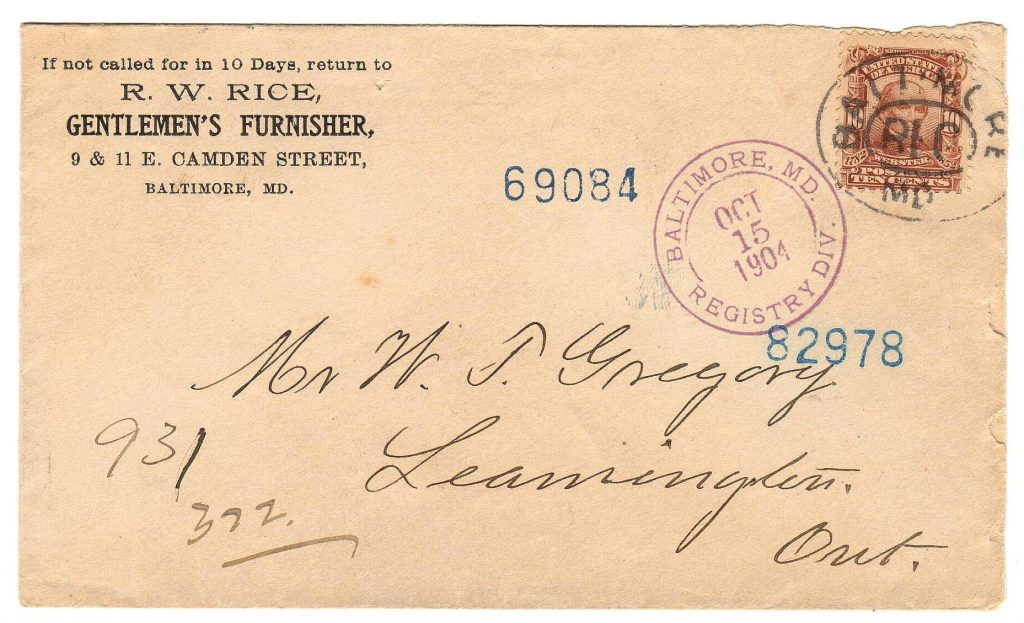 If not called for in 10 Days, return to
R. W. RICE,
GENTLEMEN'S FURNISHER,
9 & 11 E. CAMDEN STREET,
BALTIMORE, MD.
UNITED STATES
OF AMERICA
WEBSTER
POSTAGE
TEN CENTS
BALTIMORE
MD
69084
BALTIMORE, MD.
OCT
15
1904
REGISTRY DIV.
82978
Mr W. T. Gregory
Leamington.
Ont.
931
322.